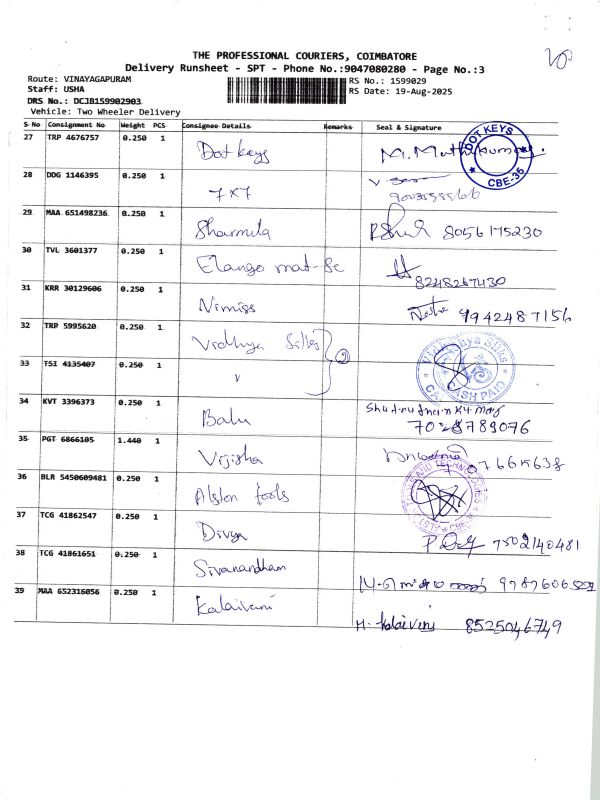 THE PROFESSIONAL COURIERS, COIMBATORE
Delivery Runsheet - SPT - Phone No.:9047080280 - Page No.:3
Route: VINAYAGAPURAM
RS No.: 1599029
Staff: USHA
RS Date: 19-Aug-2025
DRS No.: DCJB159902903
Vehicle: Two Wheeler Delivery
S No Consignment No Weight PCS Consignee Details Remarks Seal & Signature
27 TRP 4676757 0.250 1 Dot keys M. Muthukumar. DOT KEYS CBE-35
28 DDG 1146395 0.250 1 7x7
29 MAA 651498236 0.250 1 Sharmila 8056175230
30 TVL 3601377 0.250 1 Elango mat-Se 8248267430
31 KRR 30129606 0.250 1 Nimiss 9942487156
32 TRP 5995620 0.250 1 Vidhya Silks 2
33 TSI 4135407 0.250 1 "
34 KVT 3396373 0.250 1 Balu 7028789076
35 PGT 6866105 1.440 1 Vijisha
36 BLR 5450609481 0.250 1 Alston tools
37 TCG 41862547 0.250 1 Divya 7502140481
38 TCG 41861651 0.250 1 Sivanandham
39 MAA 652316056 0.250 1 Kalaivani H. Kalaivani 8525046749